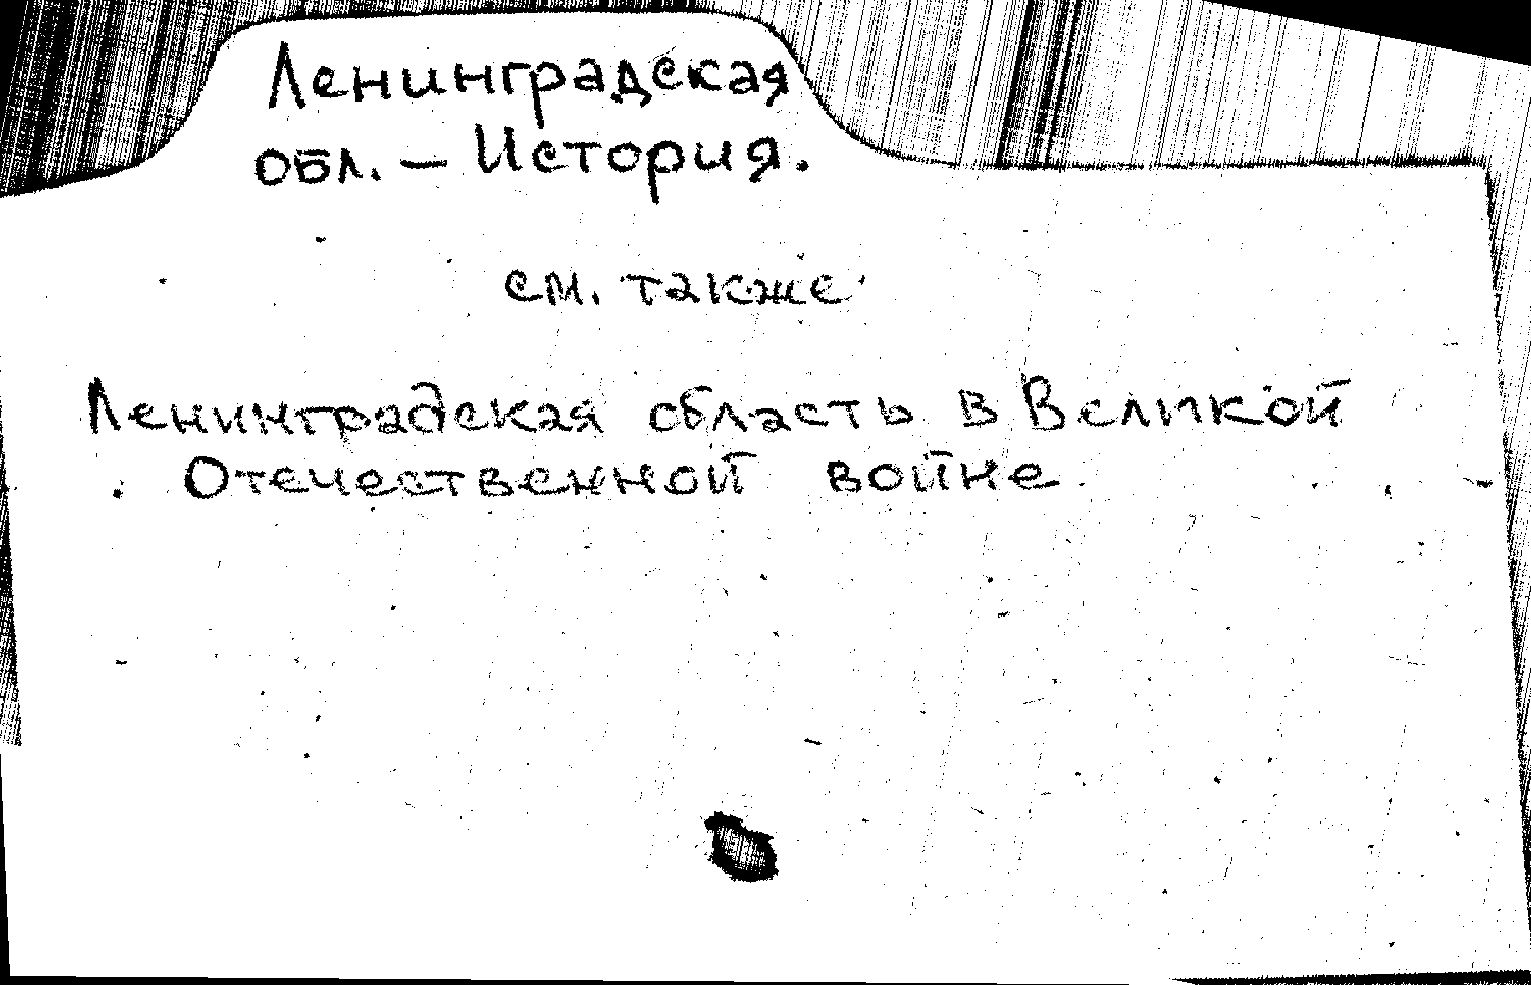 Ленинградская
обл. – История.
см. также
Ленинградская область в Великой
Отечественной войне